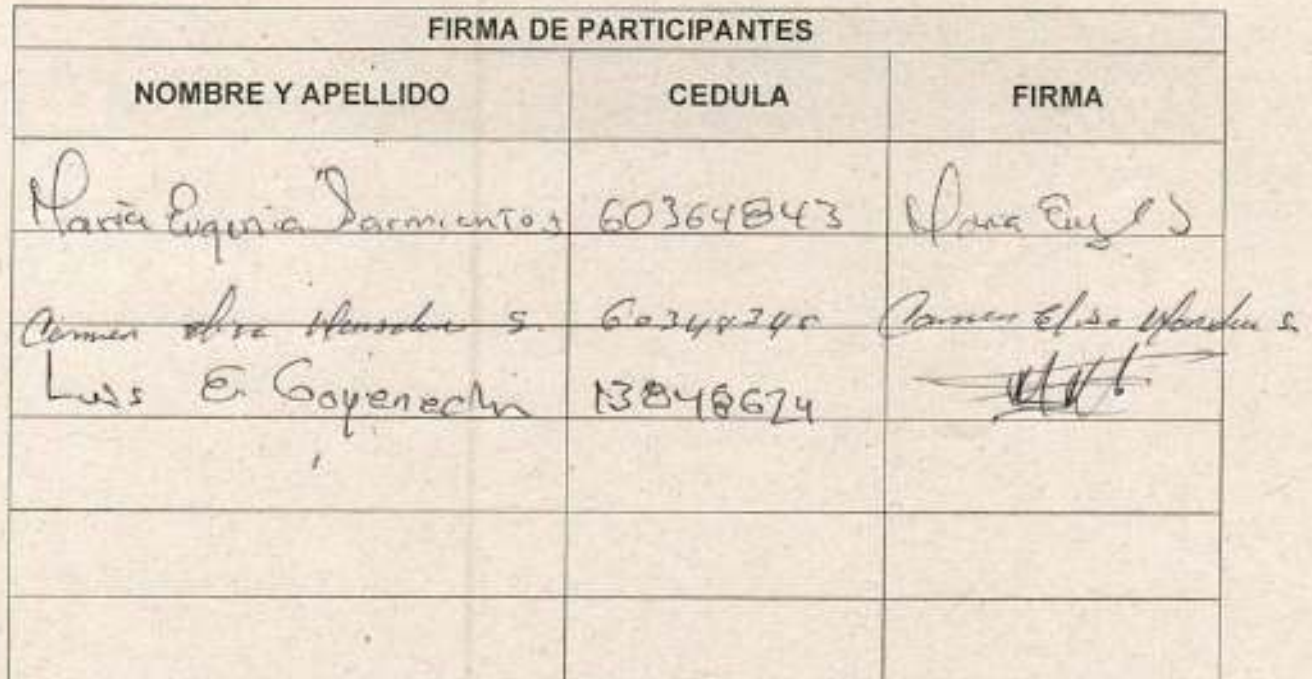 FIRMA DE PARTICIPANTES
NOMBRE Y APELLIDO CEDULA FIRMA
Maria Eugenia Sarmiento S 60364843 Maria Eug S
Carmen Elisa S. 60348345 Carmen Elisa S.
Luis E. Goyeneche 13848674